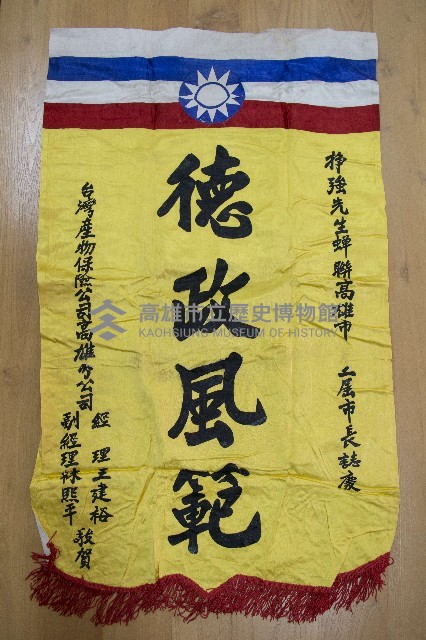 掙強先生蟬聯高雄市 二屆市長誌慶
德政風範
台灣產物保險公司高雄分公司
經理王建裕
副經理林照平 敬賀
高雄市立歷史博物館
KAOHSIUNG MUSEUM OF HISTORY